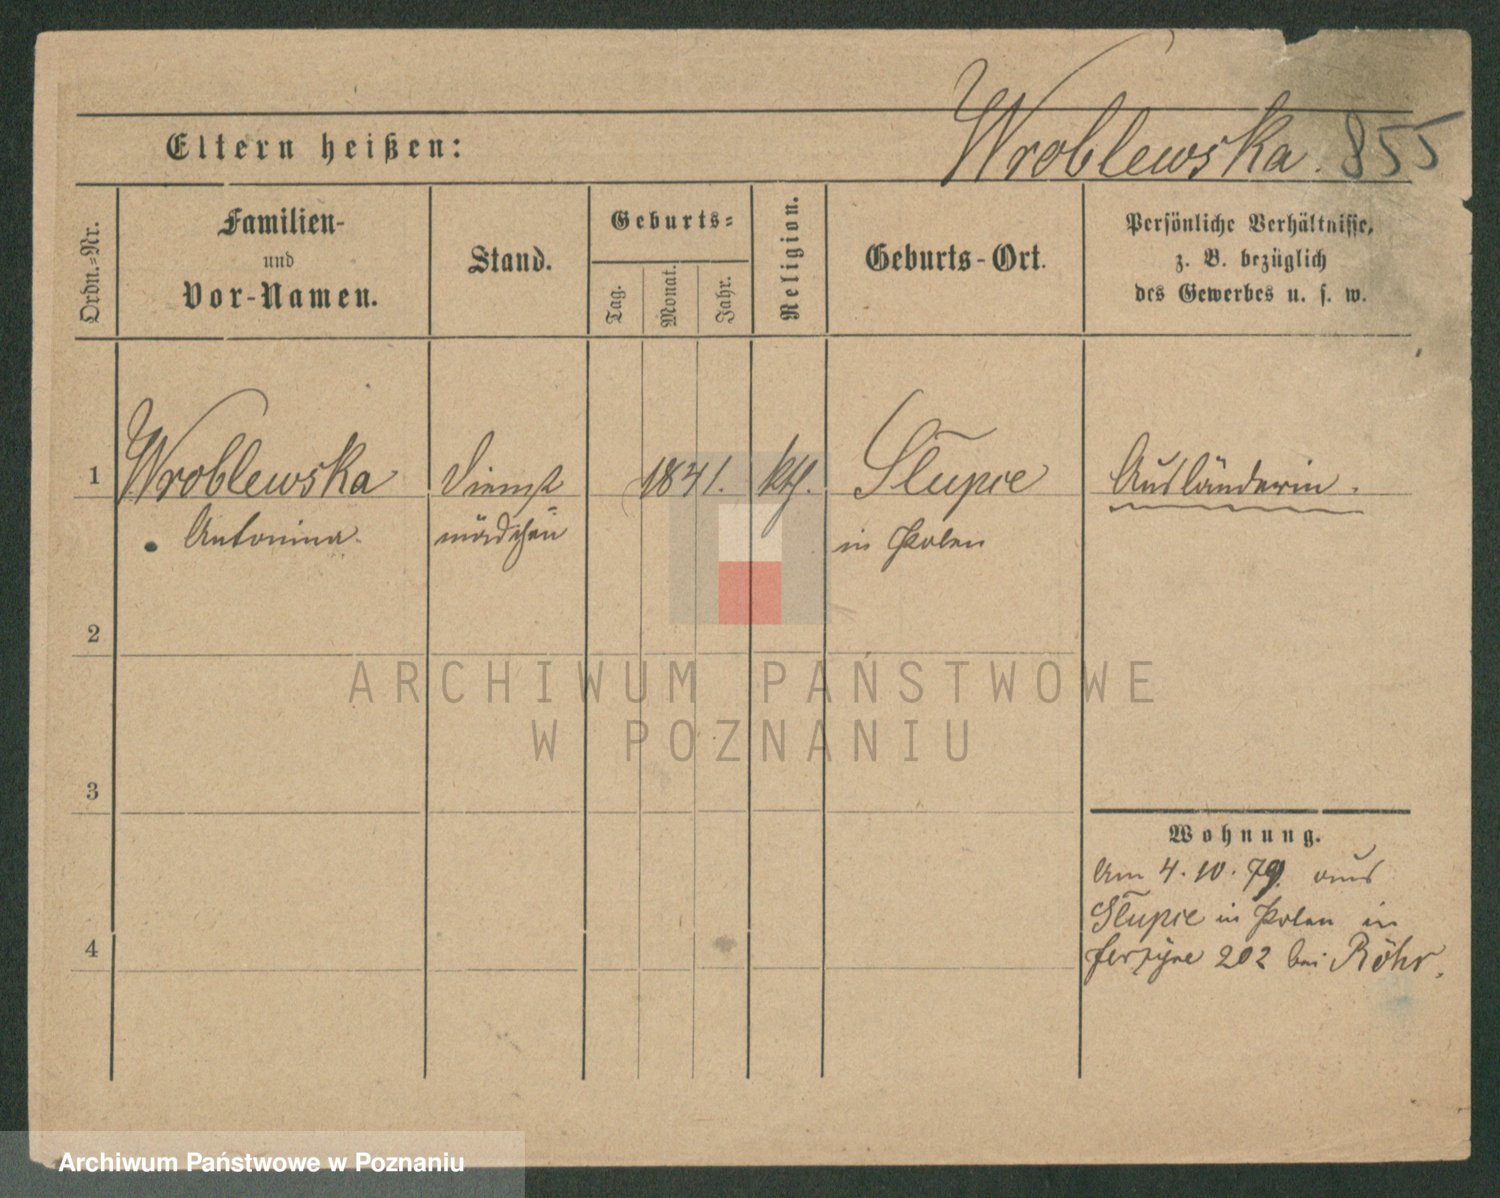 Wroblewska. 855
Eltern heißen:
Ordn.-Nr.
Familien-
und
Vor-Namen.
Stand.
Geburts-
Tag.
Monat.
Jahr.
Religion.
Geburts-Ort.
Persönliche Verhältnisse,
z. B. bezüglich
des Gewerbes u. s. w.
1
Wroblewska
Antonina
Dienst
mädchen
1841.
kth.
Słupie
in Polen
Ausländerin.
2
3
4
Wohnung.
Am 4.10.79. aus
Słupie in Polen in
Jerzyce 202 bei Röhr.
ARCHIWUM PAŃSTWOWE
W POZNANIU
Archiwum Państwowe w Poznaniu